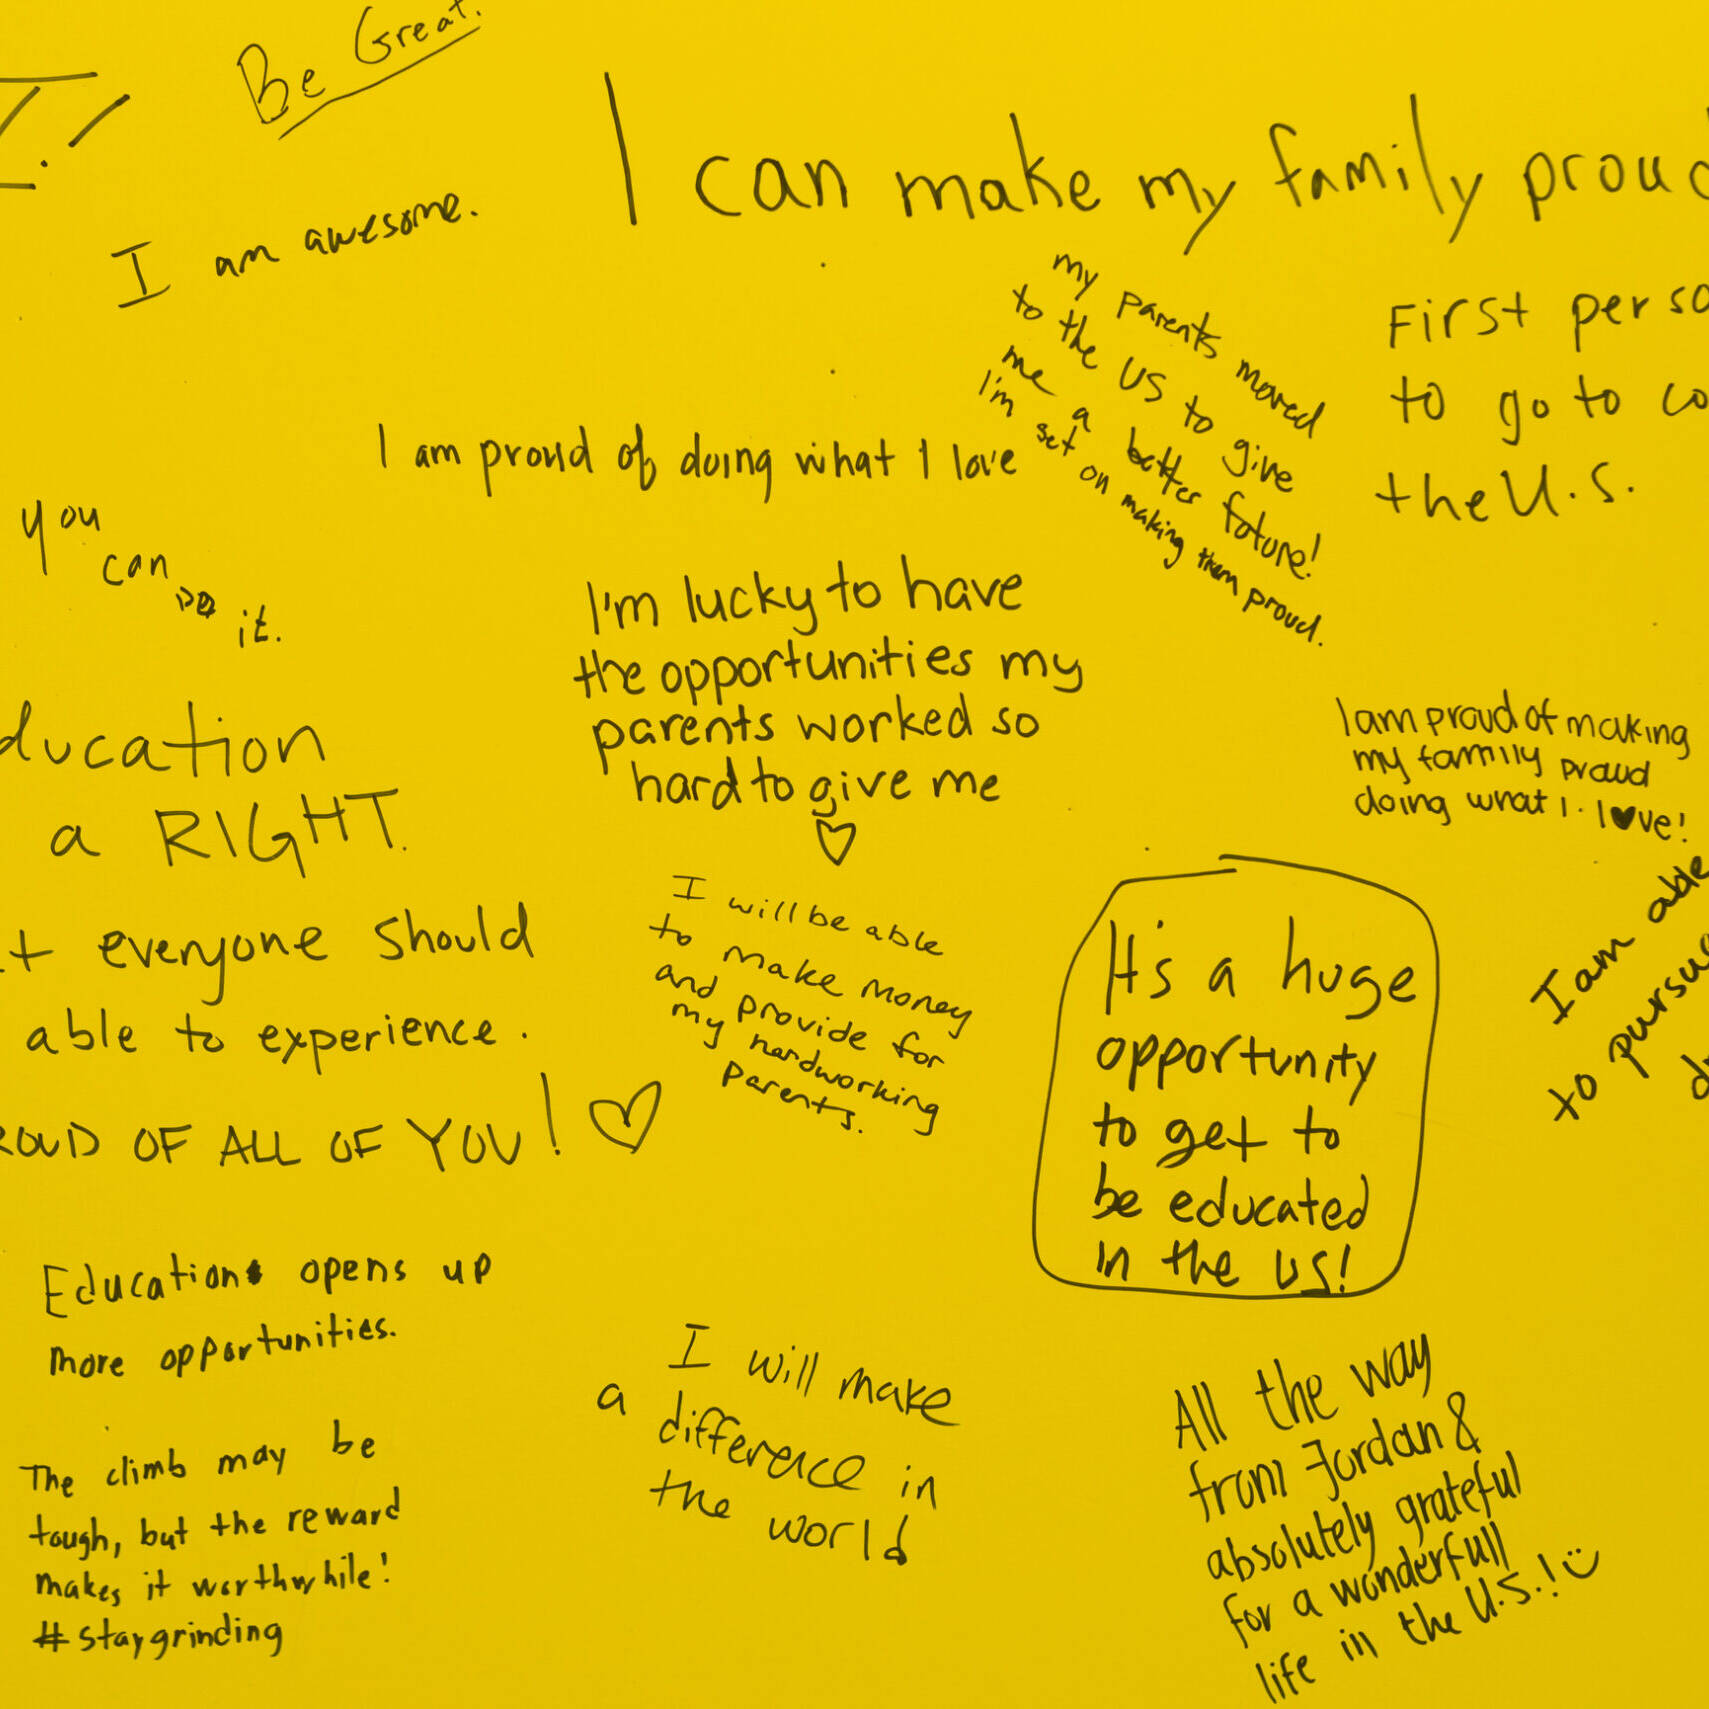 Be Great.
I am awesome.
I can make my family proud
my parents moved
to the US to give
me a better future!
I'm set on making them proud.
First perso
to go to co
the U.S.
I am proud of doing what I love
you
can
do
it.
I'm lucky to have
the opportunities my
parents worked so
hard to give me
♡
ducation
a RIGHT.
t everyone should
able to experience.
ROUD OF ALL OF YOU! ♡
I am proud of making
my family proud
doing what I. I♥ve!
I will be able
to make money
and provide for
my hardworking
parents.
It's a huge
opportunity
to get to
be educated
in the US!
I am able
to pursu
Education opens up
more opportunities.
The climb may be
tough, but the reward
makes it worthwhile!
#staygrinding
I will make
a difference in
the world
All the way
from Jordan &
absolutely grateful
for a wonderfull
life in the U.S.! :)